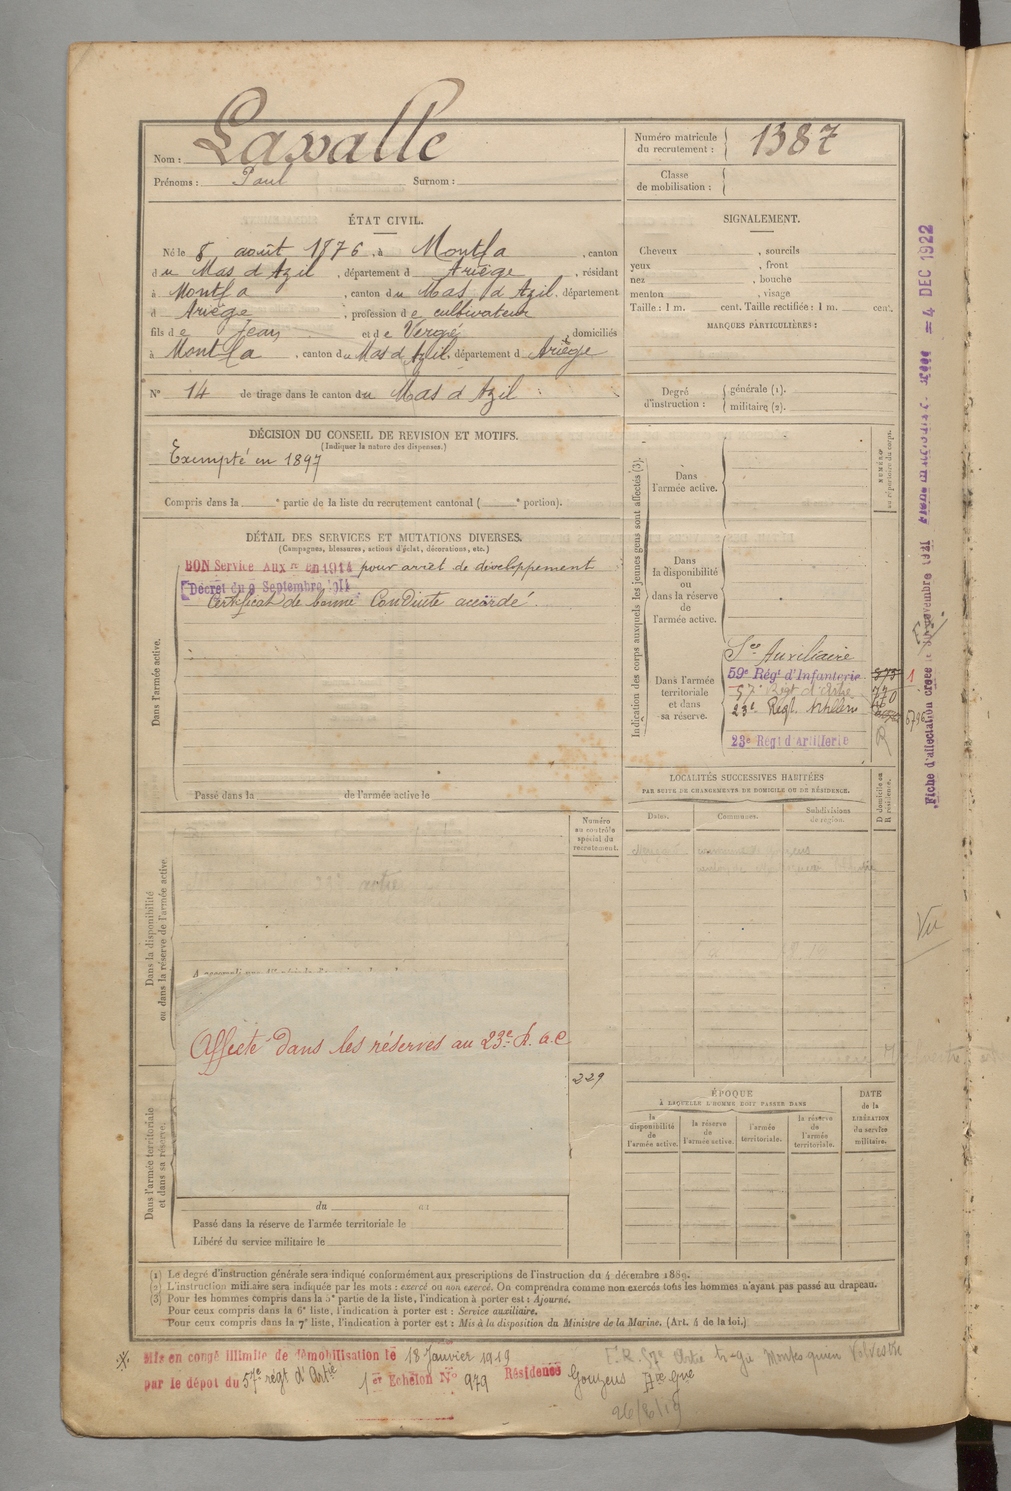 Nom : Lassalle
Prénoms : Paul Surnom :
Numéro matricule du recrutement : 1387
Classe de mobilisation :
ÉTAT CIVIL.
Né le 8 août 1876, à Montfa, canton
du Mas d'Azil, département d Ariège, résidant
à Montfa, canton du Mas d'Azil, département
d Ariège, profession de cultivateur
fils de Jean et de Vergé, domiciliés
à Montfa, canton du Mas d'Azil, département d Ariège
N° 14 de tirage dans le canton du Mas d'Azil
SIGNALEMENT.
Cheveux , sourcils
yeux , front
nez , bouche
menton , visage
Taille : 1 m. cent. Taille rectifiée : 1 m. cent.
MARQUES PARTICULIÈRES :
Degré d'instruction : générale (1).
militaire (2).
DÉCISION DU CONSEIL DE REVISION ET MOTIFS.
(Indiquer la nature des dispenses.)
Exempté en 1897
Compris dans la e partie de la liste du recrutement cantonal ( e portion).
DÉTAIL DES SERVICES ET MUTATIONS DIVERSES.
(Campagnes, blessures, actions d'éclat, décorations, etc.)
BON Service Auxre en 1914 pour arrêt de développement
Décret du 9 Septembre 1914
Certificat de bonne Conduite accordé.
Dans l'armée active.
Passé dans la de l'armée active le
Indication des corps auxquels les jeunes gens sont affectés (3).
NUMÉRO au répertoire du corps.
Dans l'armée active.
Dans la disponibilité ou dans la réserve de l'armée active.
Dans l'armée territoriale et dans sa réserve.
Sce Auxiliaire
59e Régt d'Infanterie
57e Régt d'Artie
23e Régt Artillerie
23e Régt d'artillerie
R
LOCALITÉS SUCCESSIVES HABITÉES
PAR SUITE DE CHANGEMENTS DE DOMICILE OU DE RÉSIDENCE.
Dates. Communes. Subdivisions de région. D domicile ou R résidence.
Numéro au contrôle spécial du recrutement.
229
Dans la disponibilité ou dans la réserve de l'armée active
Affecté dans les réserves au 23e R. a. c
Dans l'armée territoriale et dans sa réserve.
du au
Passé dans la réserve de l'armée territoriale le
Libéré du service militaire le
ÉPOQUE
À LAQUELLE L'HOMME DOIT PASSER DANS
la disponibilité de l'armée active.
la réserve de l'armée active.
l'armée territoriale.
la réserve de l'armée territoriale.
DATE de la LIBÉRATION du service militaire.
(1) Le degré d'instruction générale sera indiqué conformément aux prescriptions de l'instruction du 4 décembre 1889.
(2) L'instruction militaire sera indiquée par les mots : exercé ou non exercé. On comprendra comme non exercés tous les hommes n'ayant pas passé au drapeau.
(3) Pour les hommes compris dans la 5e partie de la liste, l'indication à porter est : Ajourné.
Pour ceux compris dans la 6e liste, l'indication à porter est : Service auxiliaire.
Pour ceux compris dans la 7e liste, l'indication à porter est : Mis à la disposition du Ministre de la Marine. (Art. 4 de la loi.)
Mis en congé illimité de démobilisation le 18 Janvier 1919
par le dépôt du 57e régt d'Artie 1er Echelon N° 979 Résidence Gouzens
26/8/19
= 4 DEC 1922
Vu